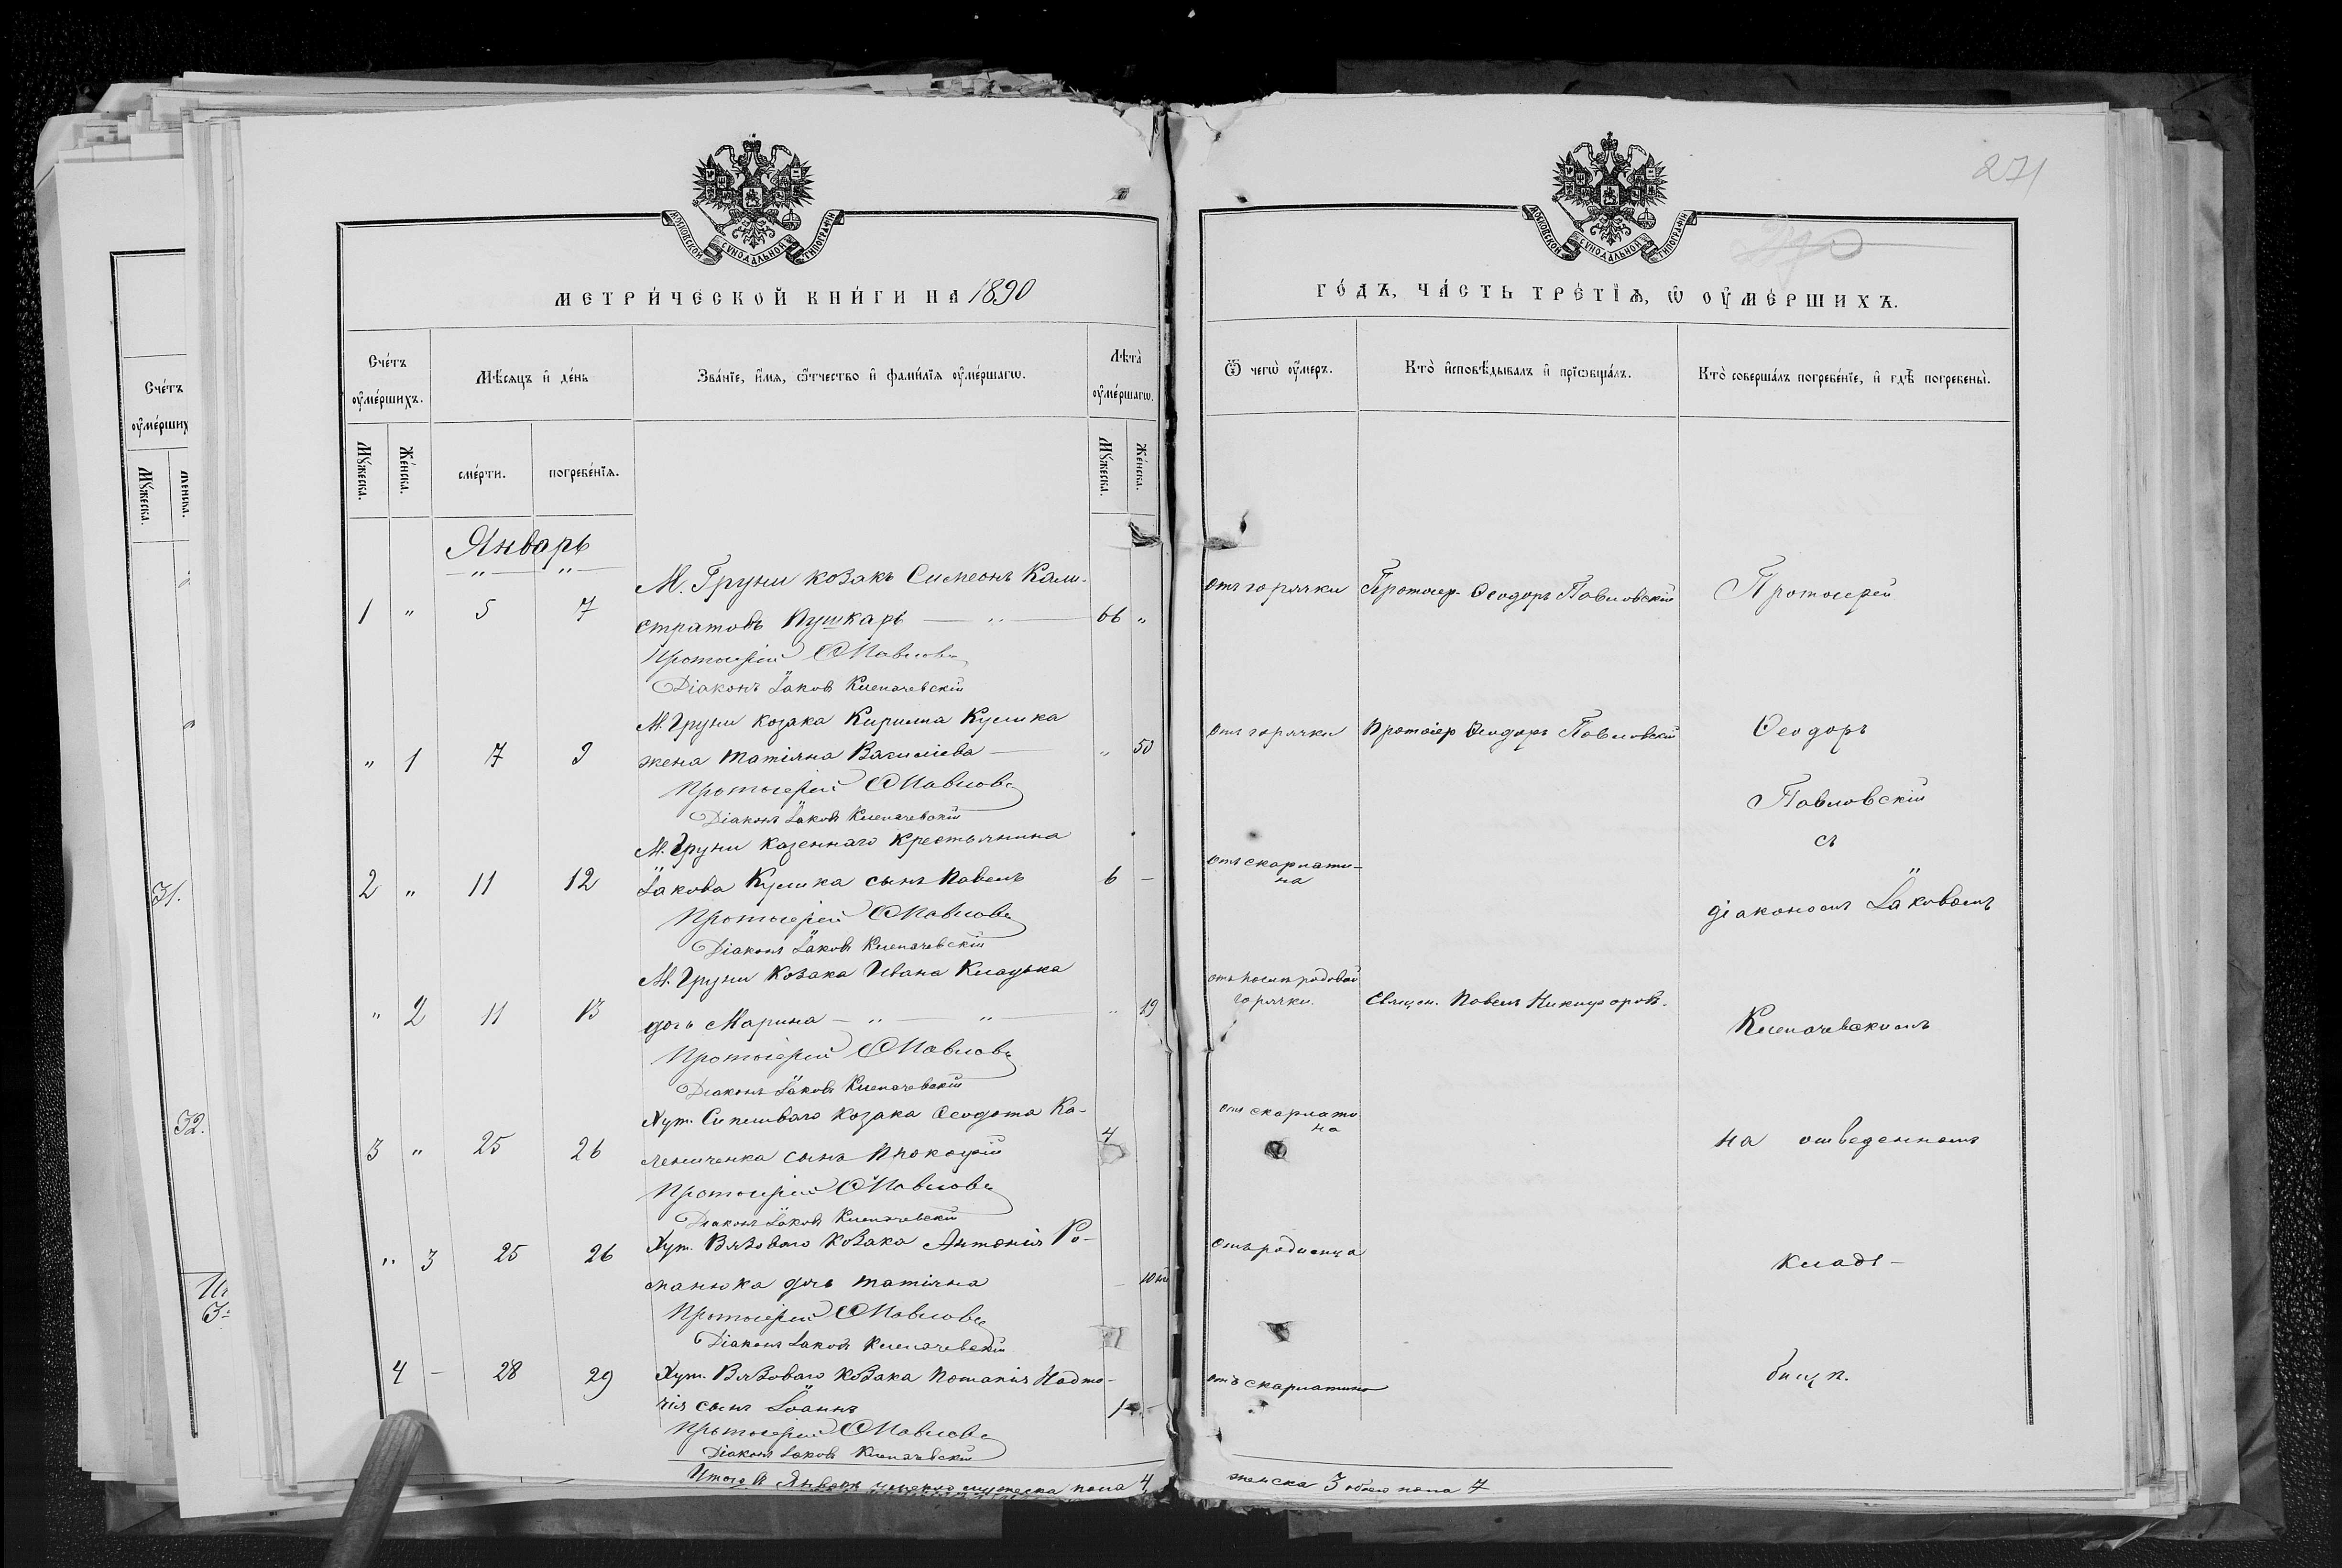 МОСКОВСКОЙ СѴНОДАЛЬНОЙ ТИПОГРАФІИ
МЕТРИ́ЧЕСКОЙ КНИ́ГИ НА 1890
Сче́тъ ᲂу҆ме́ршихъ.
Мѣ́сяцъ и҆ де́нь
Зва́нїе, и҆́мѧ, ѻ҆́тчество и҆ фами́лїѧ ᲂу҆ме́ршагѡ.
Лѣ́та ᲂу҆ме́ршагѡ.
Мꙋ́жеска.
Же́нска.
сме́рти.
погребе́нїѧ.
Мꙋ́жеска.
Же́нска.
Январь
М. Груни козакъ Симеонъ Кали-
1 " 5 7 стратовъ Пушкарь 66 "
Протоіерей Ѳ Павловс
Діаконъ Іаковъ Клепачевскій
М. Груни козака Кирилла Кулика
" 1 7 9 жена Татіяна Василіева " 50
Протоіерей Ѳ Павловс
Діаконъ Іаковъ Клепачевскій
М. Груни казеннаго крестьянина
2 " 11 12 Іакова Кулика сынъ Павелъ 6 -
Протоіерей Ѳ Павловс
Діаконъ Іаковъ Клепачевскій
М. Груни Козака Ивана
" 2 11 13 дочь Марина " 19
Протоіерей Ѳ Павловс
Діаконъ Іаковъ Клепачевскій
Хут. козака Ѳеодота Ка-
3 " 25 26 сынъ Прокопій 4
Протоіерей Ѳ Павловс
Діаконъ Іаковъ Клепачевскій
Хут. Вязоваго козака Антонія Ро-
" 3 25 26 манюка дочь Татіяна - 10
Протоіерей Ѳ Павловс
Діаконъ Іаковъ Клепачевскій
Хут. Вязоваго козака Потапія Надто-
4 - 28 29 чія сынъ Іоаннъ 1 -
Протоіерей Ѳ Павловс
Діаконъ Іаковъ Клепачевскій
Итого въ Январѣ мужеска пола 4,
271
МОСКОВСКОЙ СѴНОДАЛЬНОЙ ТИПОГРАФІИ
ГО́ДЪ, ЧА́СТЬ ТРЕ́ТЇѦ, Ѡ҆ ОУ҆МЕ́РШИХЪ.
Ѿ чегѡ̀ ᲂу҆́меръ.
Кто̀ и҆сповѣ́дывалъ и҆ прїѡбща́лъ.
Кто̀ соверша́лъ погребе́нїе, и҆ гдѣ̀ погребены̀.
отъ горячки Протоіер. Ѳеодоръ Павловскій Протоіерей
отъ горячки Протоіер Ѳеодоръ Павловскій Ѳеодоръ
Павловскій
съ
отъ скарлати-
на
діакономъ Іаковомъ
отъ послѣродовой
горячки. Священ. Павелъ Никифоровъ.
Клепачевскимъ
отъ скарлати
на
на отведенномъ
отъ родимца
кладъ-
бищѣ.
отъ скарлатины
женска 3 обоего пола 7
Сче́тъ
ᲂу҆ме́рших
Мꙋ́жеска.
31.
32.